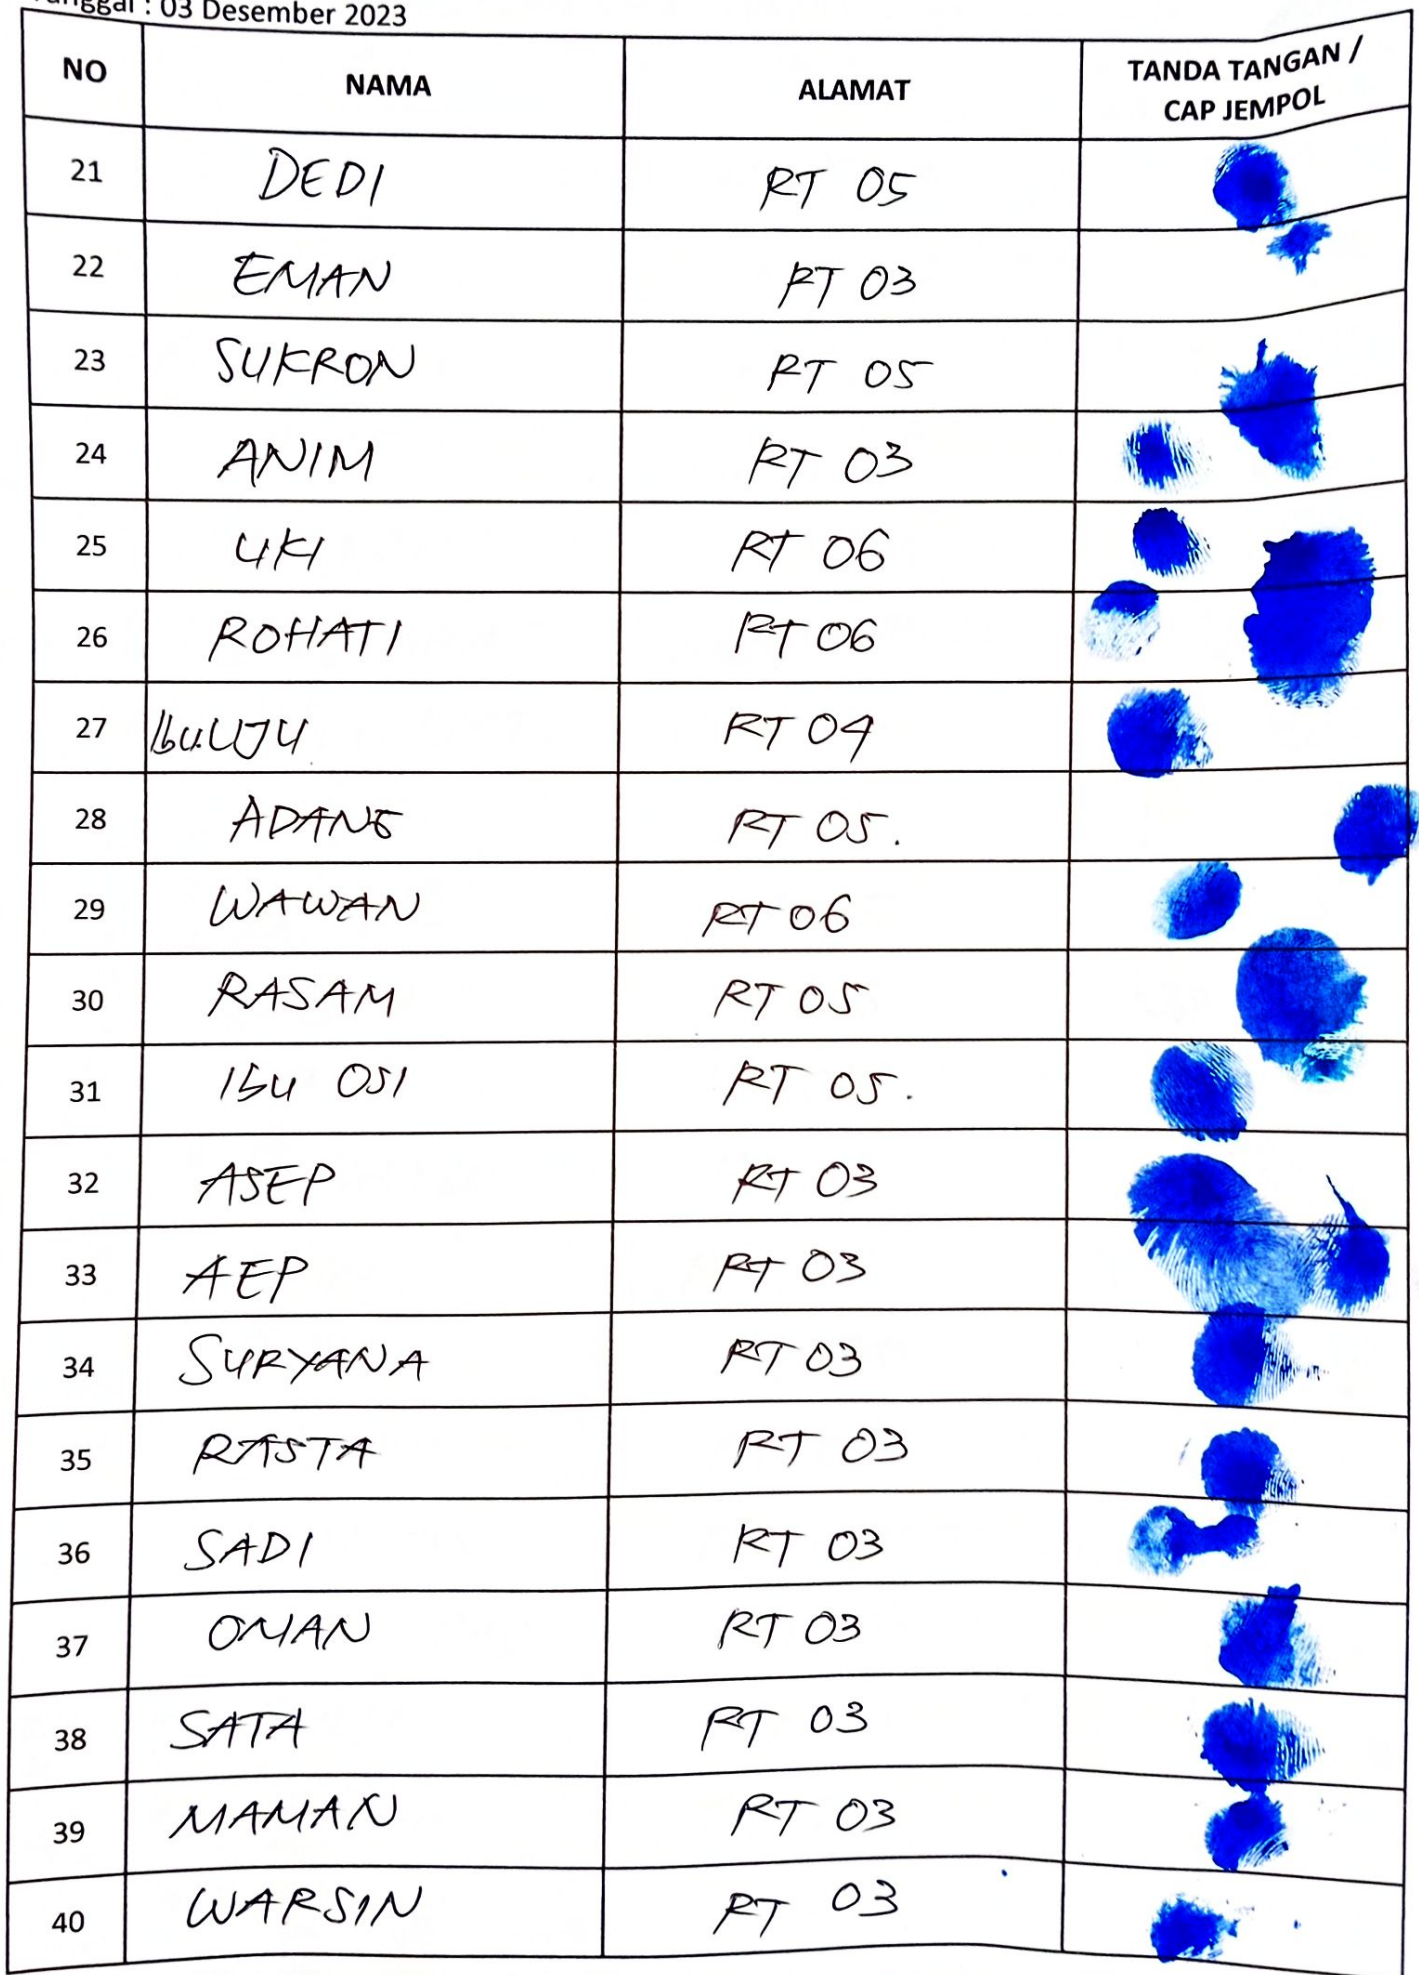 Tanggal : 03 Desember 2023
NO NAMA ALAMAT TANDA TANGAN /
CAP JEMPOL
21 DEDI RT 05
22 EMAN RT 03
23 SUKRON RT 05
24 ANIM RT 03
25 UKI RT 06
26 ROHATI RT 06
27 Ibu.UJU RT 04
28 ADANG RT 05.
29 WAWAN RT 06
30 RASAM RT 05
31 Ibu OSI RT 05.
32 ASEP RT 03
33 AEP RT 03
34 SURYANA RT 03
35 RASTA RT 03
36 SADI RT 03
37 OMAN RT 03
38 SATA RT 03
39 MAMAN RT 03
40 WARSIN RT 03